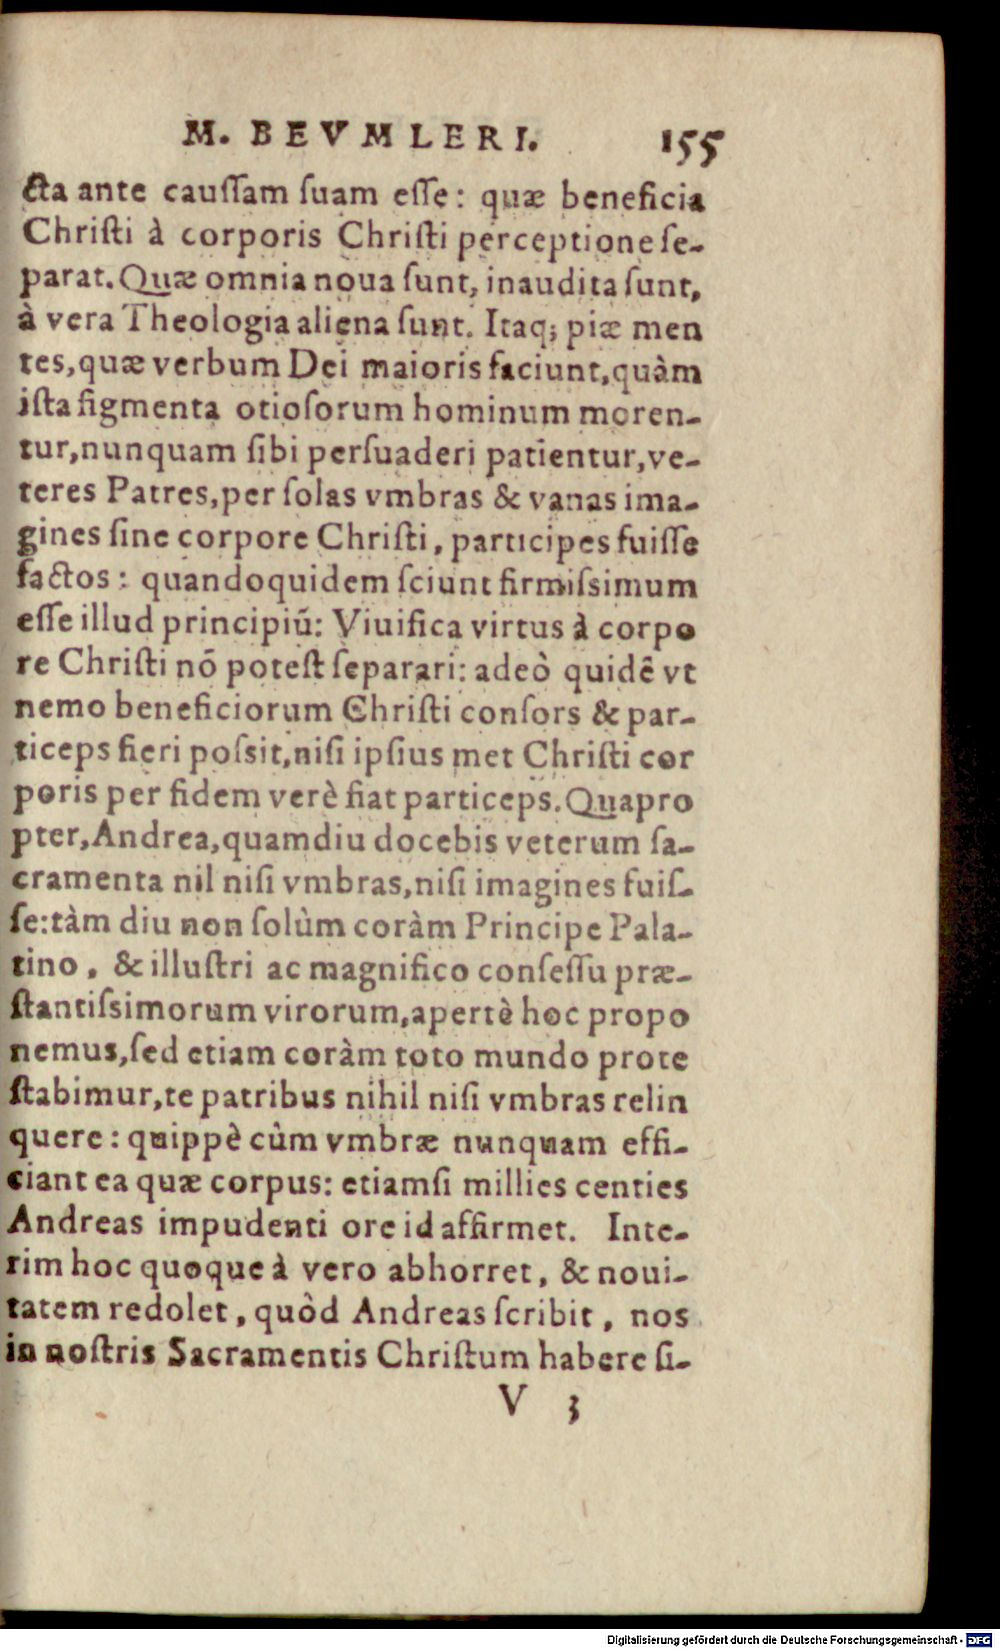 M. BEVMLERI. 155
cta ante caussam suam esse: quæ beneficia
Christi à corporis Christi perceptione se-
parat. Quæ omnia noua sunt, inaudita sunt,
à vera Theologia aliena sunt. Itaq; piæ men
tes, quæ verbum Dei maioris faciunt, quàm
ista figmenta otiosorum hominum moren-
tur, nunquam sibi persuaderi patientur, ve-
teres Patres, per solas vmbras & vanas ima-
gines sine corpore Christi, participes fuisse
factos: quandoquidem sciunt firmissimum
esse illud principiũ: Viuifica virtus à corpo
re Christi nõ potest separari: adeò quidẽ vt
nemo beneficiorum Christi consors & par-
ticeps fieri possit, nisi ipsius met Christi cor
poris per fidem verè fiat particeps. Quapro
pter, Andrea, quamdiu docebis veterum sa-
cramenta nil nisi vmbras, nisi imagines fuis-
se: tàm diu non solùm coràm Principe Pala-
tino, & illustri ac magnifico consessu præ-
stantissimorum virorum, apertè hoc propo
nemus, sed etiam coràm toto mundo prote
stabimur, te patribus nihil nisi vmbras relin
quere: quippè cùm vmbræ nunquam effi-
ciant ea quæ corpus: etiamsi millies centies
Andreas impudenti ore id affirmet. Inte-
rim hoc quoque à vero abhorret, & noui-
tatem redolet, quòd Andreas scribit, nos
in nostris Sacramentis Christum habere si-
V 3
Digitalisierung gefördert durch die Deutsche Forschungsgemeinschaft - DFG